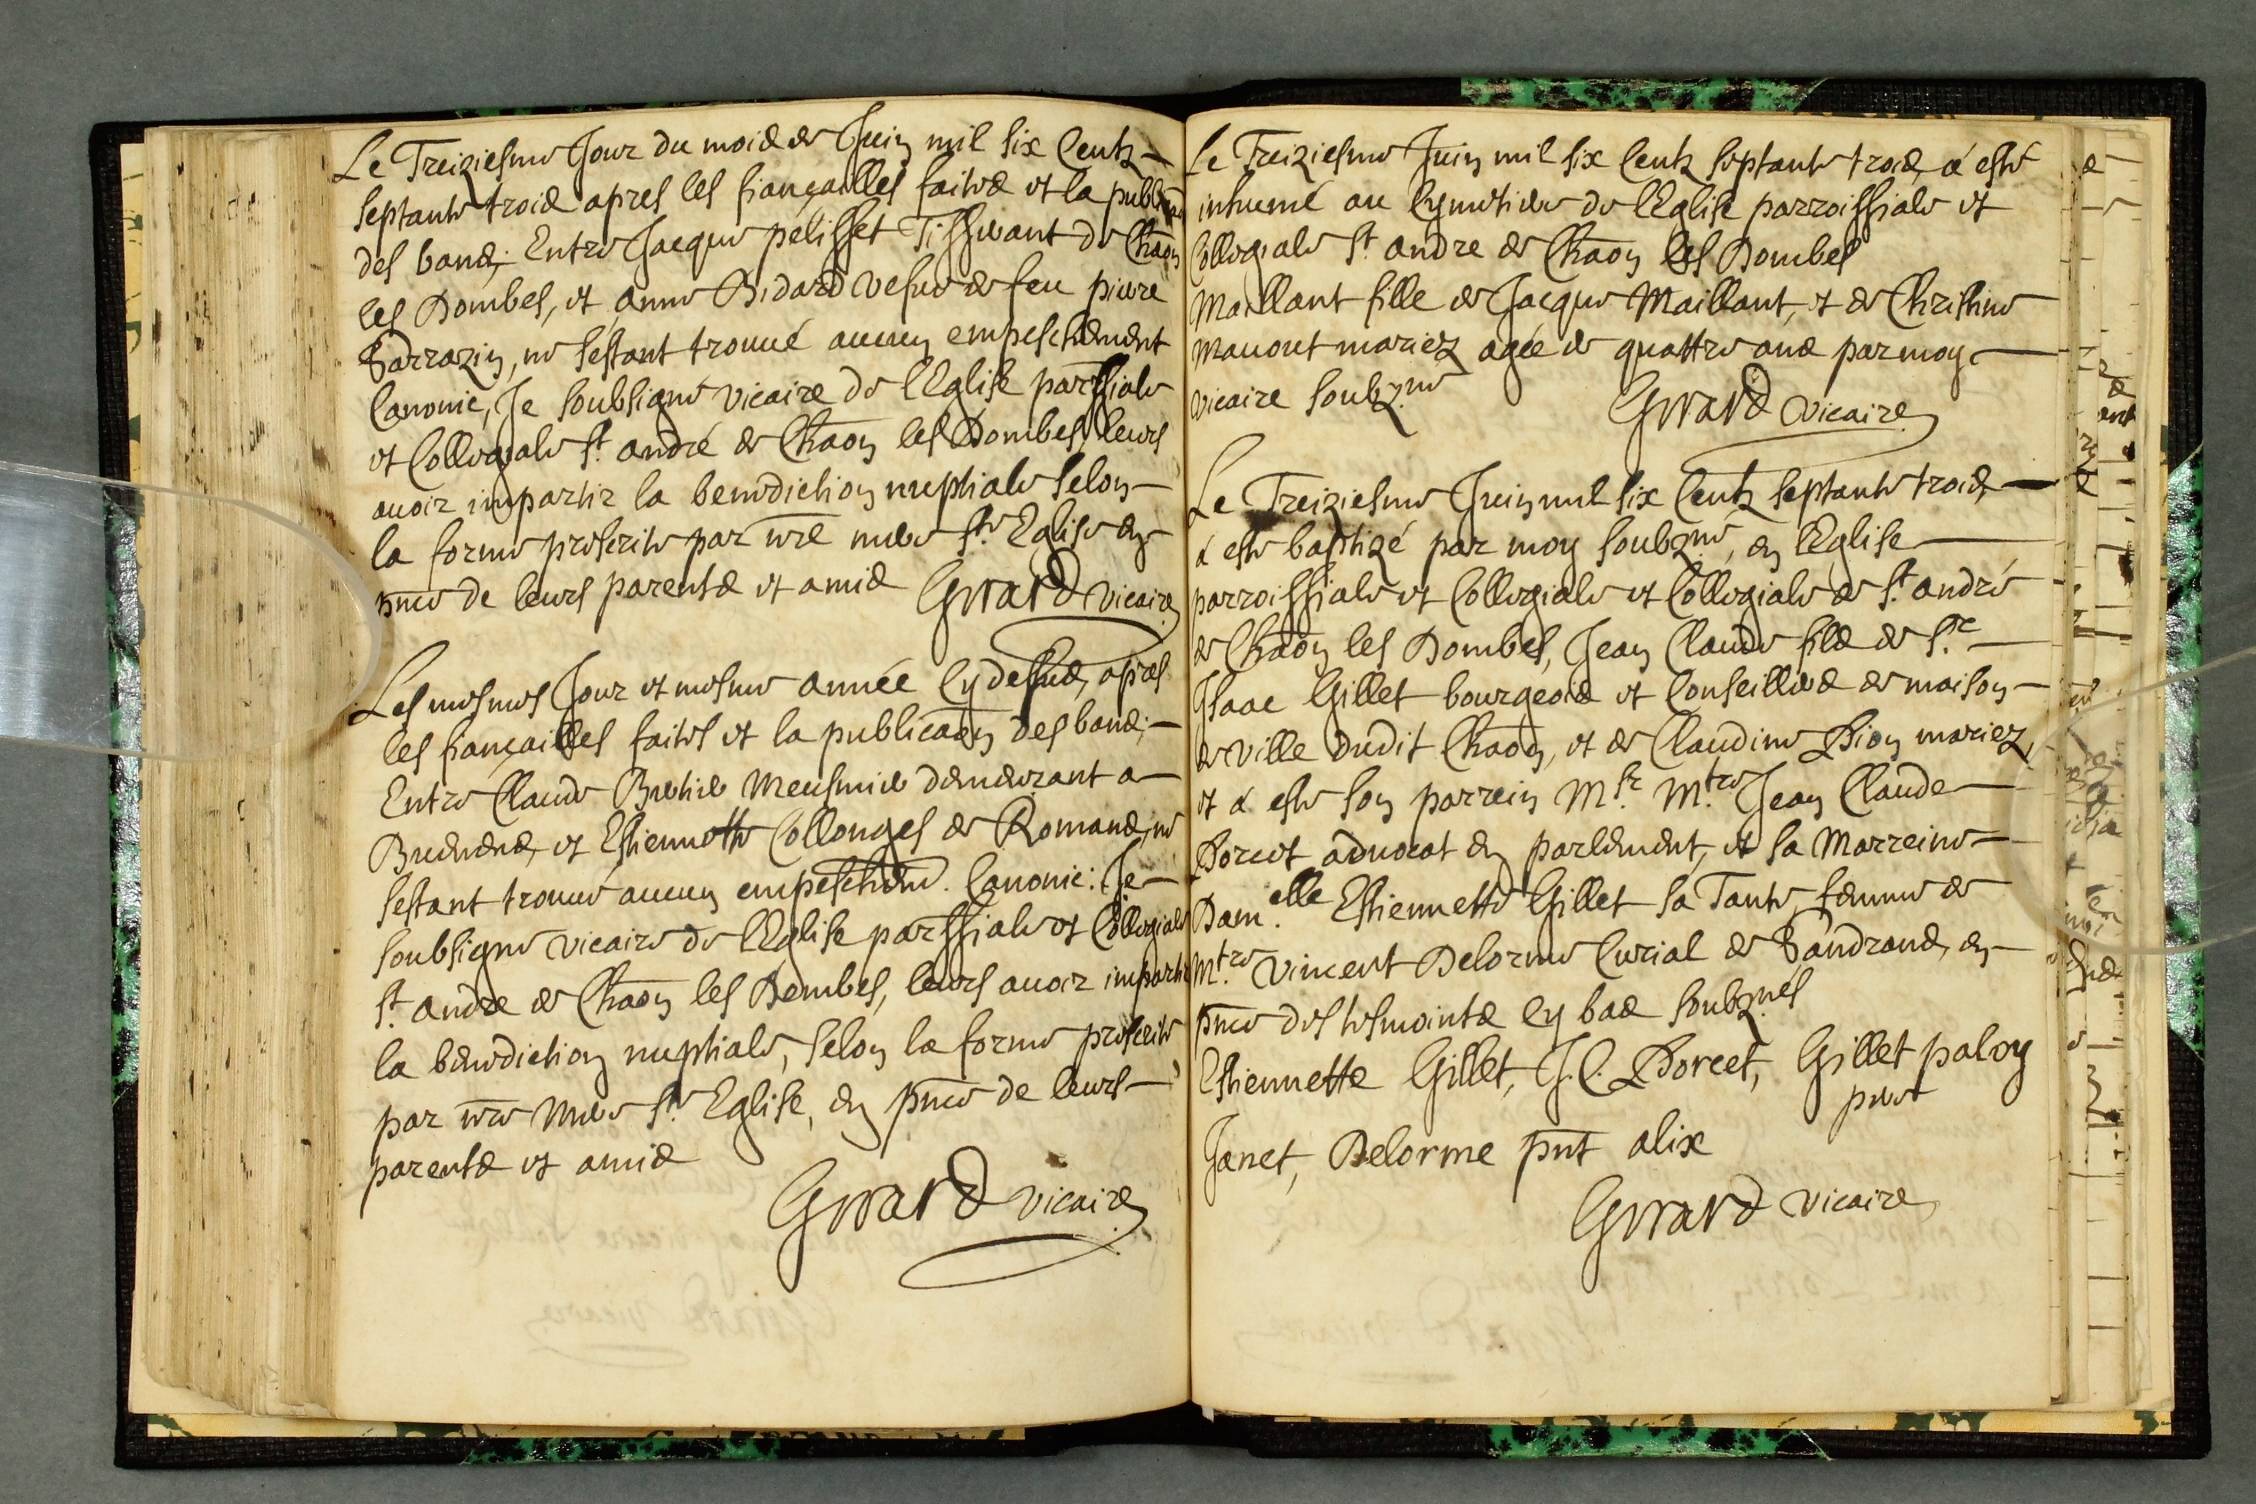 Le Treiziesme Jour du mois de Juin mil six Centz
septante trois apres les fiançailles faites et la
des bans; Entre Jacque pelisset Tisserant de Chaōn
les Dombes, et anne Bidard vefue de feu pierre
Sarrazin, ne sestant trouué aucun empeschement
Canonic, Je soubsigné vicaire de lEglise parrssiale
et Collegiale St. andré de Chaōn les Dombes, leurs
auoir impartir la benediction nuptiale selon
la forme prescrite par nrē mere Ste. Eglise en
pn̄ce de leurs parents et amis Girard vicaire
Les mesmes Jour et mesme année Cy dessus, apres
les fiançailles faites et la publicaōn des bans;
Entre Claude Musnier demeurant a
et Estiennette Collonges de Romans, ne
sestant trouué aucun empeschem̄. Canonic: Je
soubsigné vicaire de lEglise parrssiale et Collegiale
St. andre de Chaōn les Dombes, leurs auoir impartir
la benediction nuptiale, selon la forme prescrite
par nrē Mere Ste Eglise, en pn̄ce de leurs
parents et amis
Girard vicaire
Le Treiziesme Juin mil six Centz septante trois, a esté
inhumé au Cymetiere de lEglise parroissiale et
Collegiale St. andre de Chaōn les Dombes
Maillant fille de Jacque Maillant, et de Christine
Manout mariez agée de quattre ans par moy
vicaire soubzné
Girard vicaire
Le Treiziesme Juin mil six Centz septante trois,
a esté baptizé par moy soubzné, en lEglise
parroissiale et Collegiale et Collegiale de St. andré
de Chaōn les Dombes, Jean Claude fils de Sr.
Isaac Gillet bourgeois et Conseillier de maison
de ville dudit Chaōn, et de Claudine Dion mariez,
et a esté son parrein Msr. Mtre Jean Claude
Dorcet aduocat en parlement, et sa Marreine
Dam.elle Estiennette Gillet sa Tante, femme de
Mtre. Vincent Delorme Curial de Sandrans, en
pn̄ce des tesmoints Cy bas soubznés
Estiennette Gillet, J. C. Dorcet, Gillet
Janet, Delorme pn̄t alix
Girard vicaire